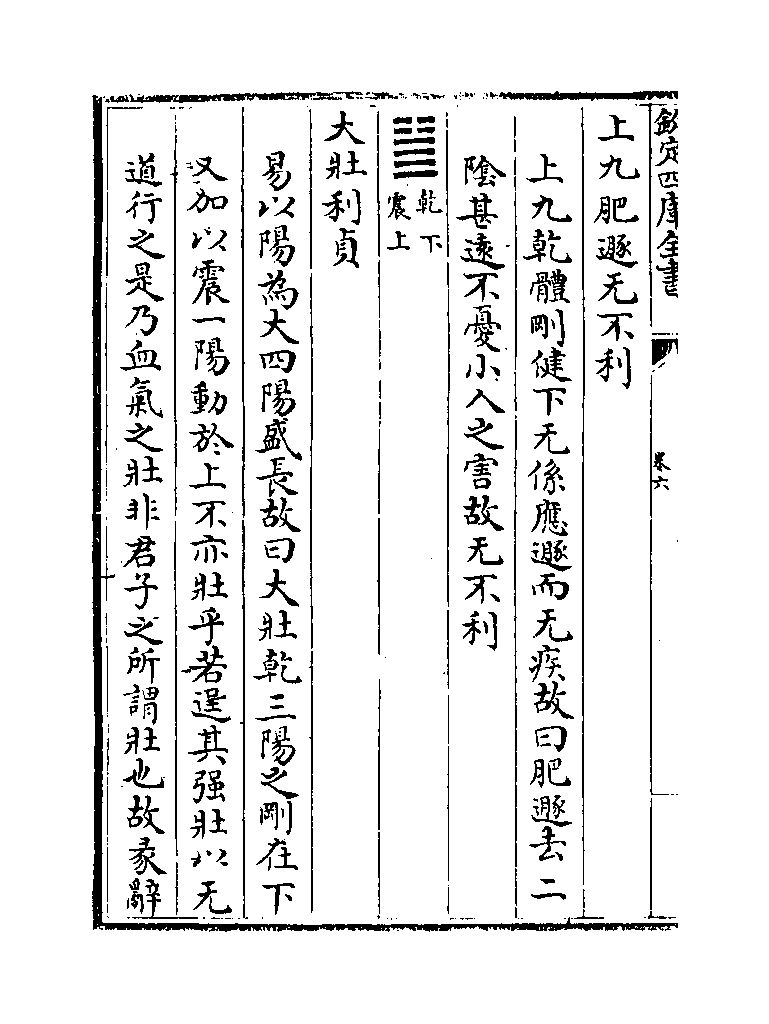 欽定四庫全書
卷六
上九肥遯无不利
上九乾體剛健下无係應遯而无疾故曰肥遯去二
陰甚遠不憂小人之害故无不利
䷡
乾下
震上
大壯利貞
易以陽為大四陽盛長故曰大壯乾三陽之剛在下
又加以震一陽動於上不亦壯乎若逞其强壯以无
道行之是乃血氣之壯非君子之所謂壯也故彖辭